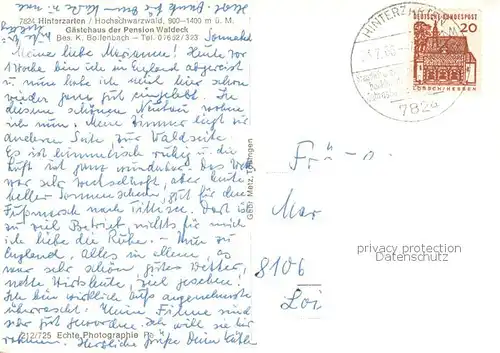 7824 Hinterzarten / Hochschwarzwald, 900–1400 m ü. M.
Gästehaus der Pension Waldeck
Bes. K. Bollenbach – Tel. 07652/323
Sonnabd
Meine liebe Marianne! Heute vor
1 Woche bin ich in England abgereist
u. nun habe ich mich hier schon
wieder ganz gut eingelebt. In
diesem schönen Neubau wohne
ich nun. Mein Zimmer liegt zur
anderen Seite zur Waldseite
Es ist himmlisch ruhig u. die
Luft ist ganz wunderbar. Das Wetter
war sehr wechselhaft, aber heute
heller Sonnenschein, gut für den
Fußmarsch nach Titisee. Dort ist
zu viel Betrieb, nichts für mich
ich liebe die Ruhe. – Nun zu
England, alles in allem, es
war sehr schön, gutes Wetter,
nette Wirtsleute, viel gesehen.
Ich bin wirklich aufs angenehmste
überrascht. Meine Filme sind
sehr gut geworden. Ich will sie hier
Herzliche Grüße Dein
212/725 Echte Photographie
Gebr. Metz, Tübingen
HINTERZARTEN
7824
DEUTSCHE BUNDESPOST
20
LORSCH/HESSEN
Frä
Mar
8106
Loi
privacy protection
Datenschutz